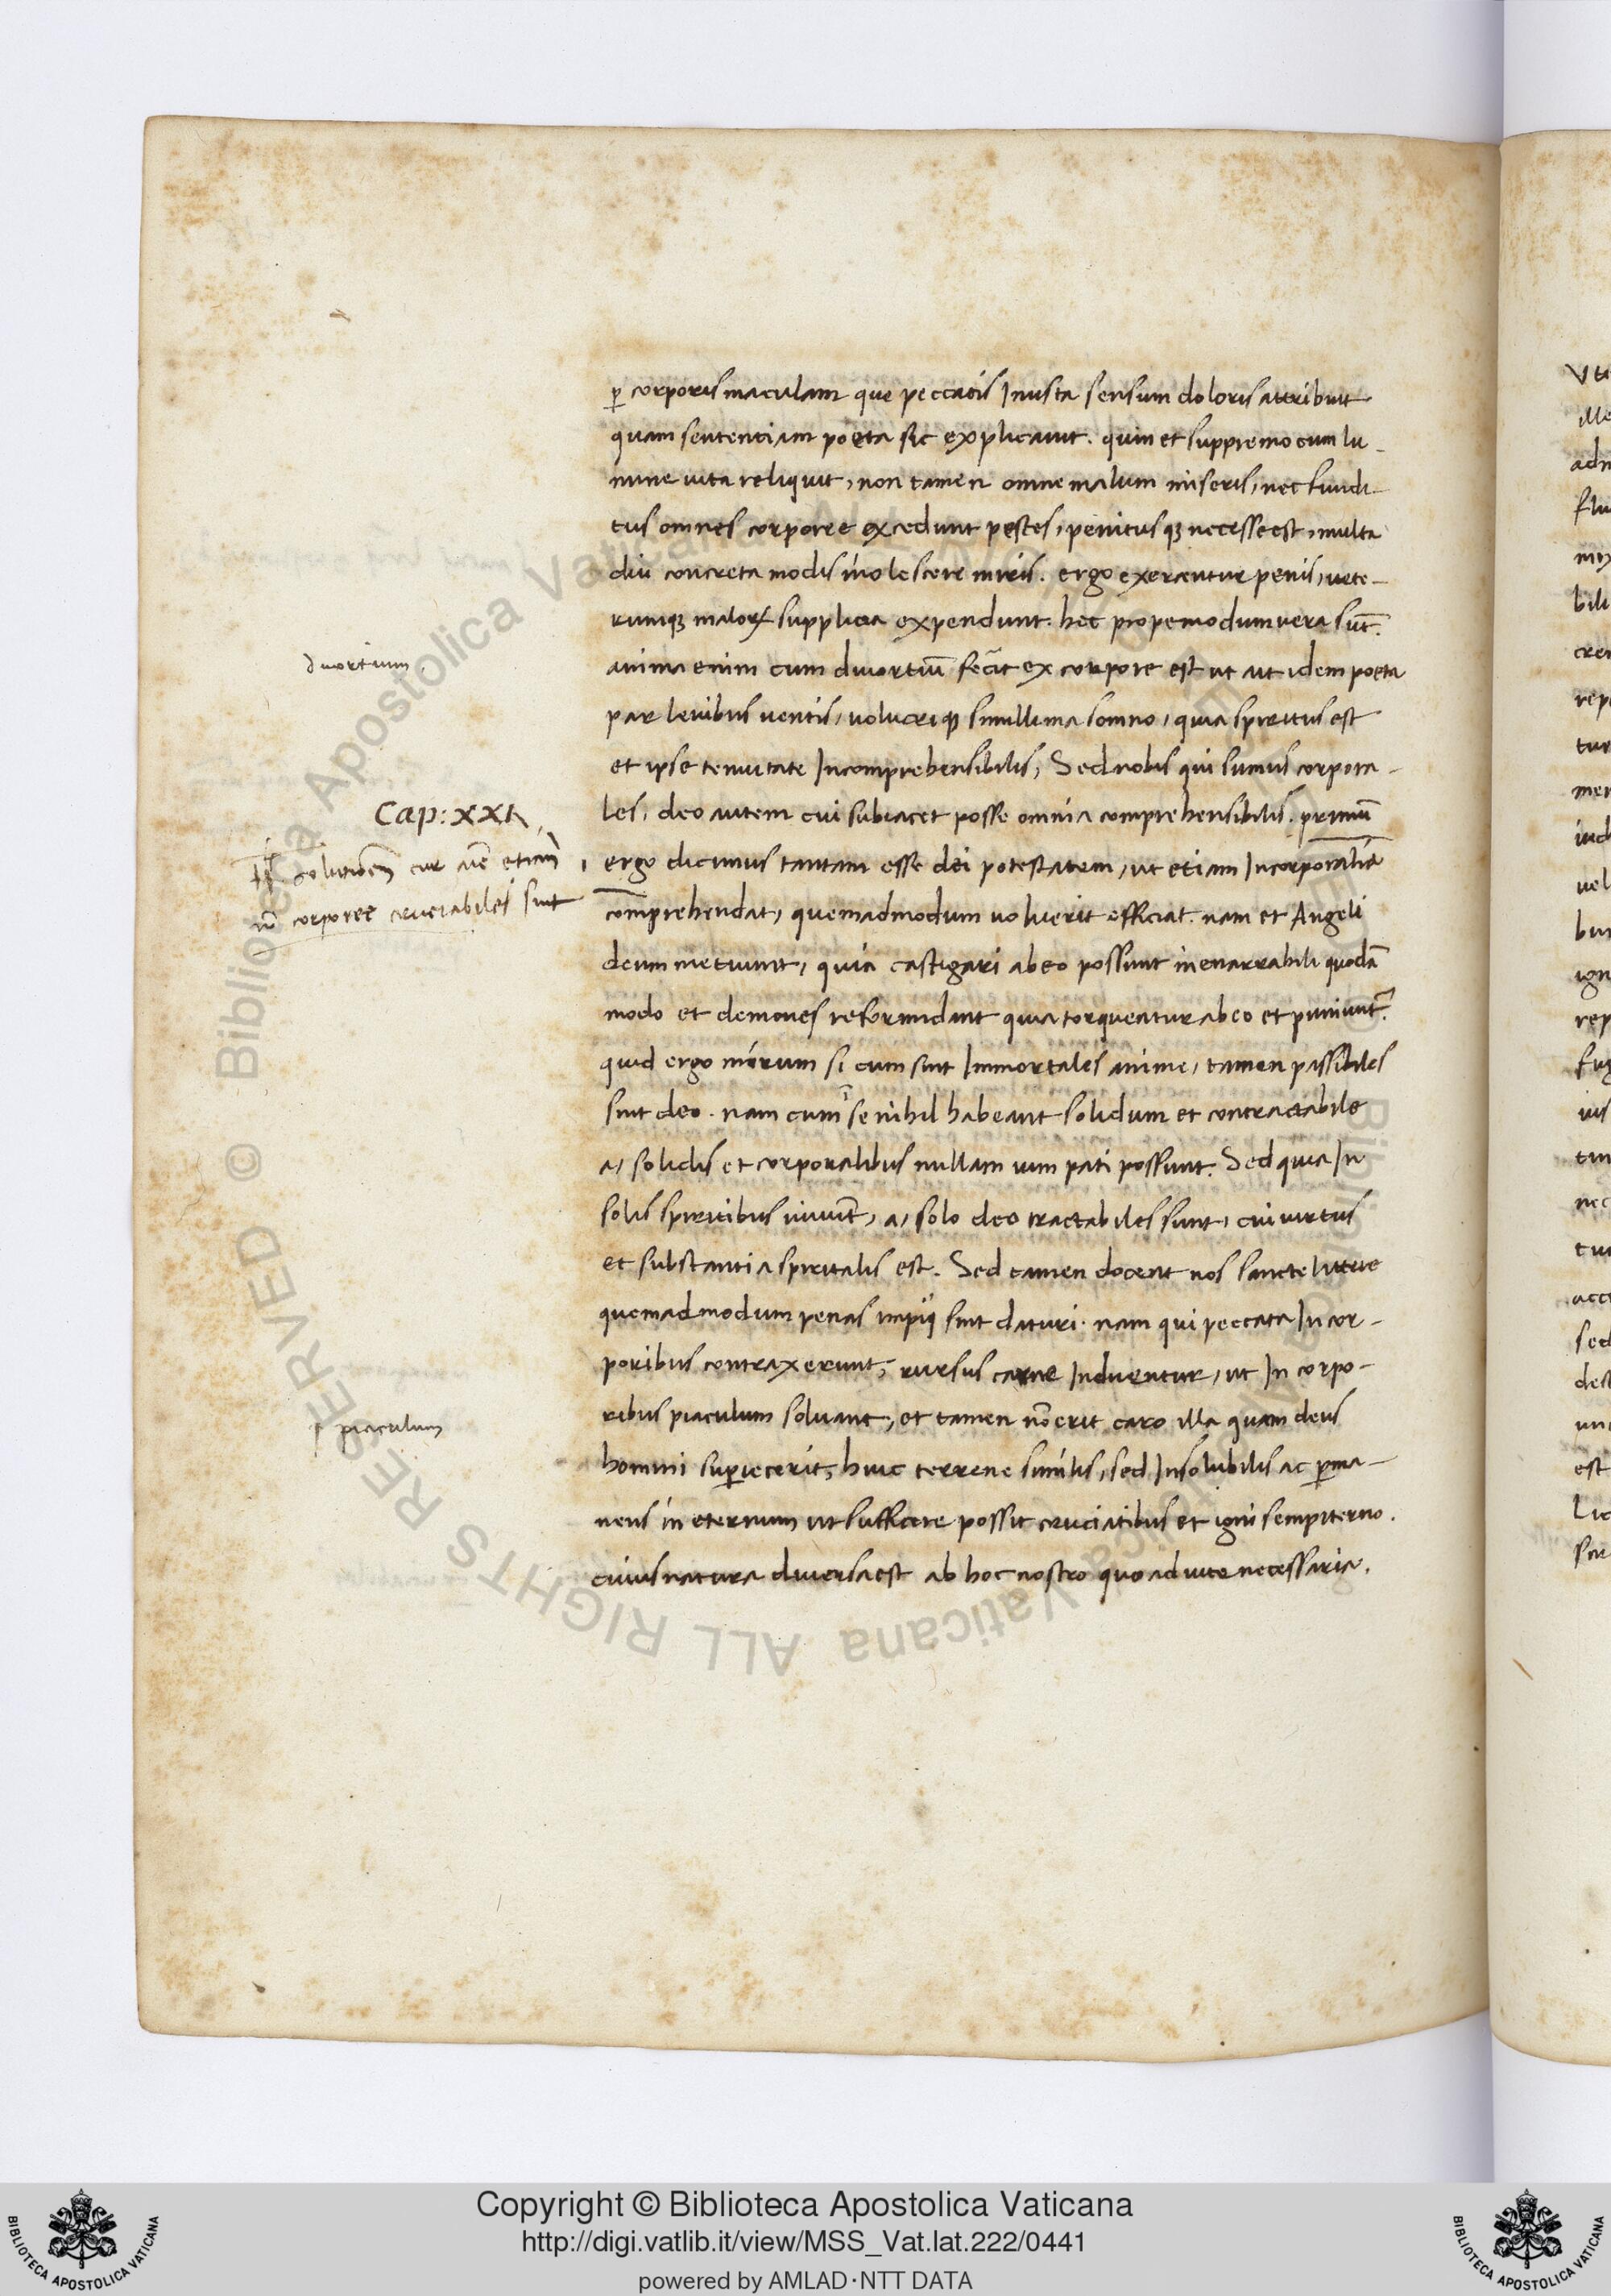 ꝑ corporis maculam que peccatis Inusta sensum doloris attribuit
quam sententiam poeta sic explicauit. quin et suppremo cum lu-
mine uita reliquit, non tamen omne malum miseris, nec fundi-
tus omnes corpore excedunt pestes, penitusqꝫ necesse est, multa
diu concreta modis inolescere miris. ergo exercentur penis, uete-
rumqꝫ maloꝝ supplicia expendunt. hec propemodum uera sūt.
anima enim cum diuortiū fecīt ex corpore est ut ait idem poeta
par leuibus uentis, uolucriqꝫ simillima somno, quia spiritus est
et ipse tenuitate Incomprehensibilis, Sed nobis qui sumus corpora-
les, deo autem cui subiacet posse omnia comprehensibilis. primū
ergo dicimus tantam esse dei potestatem, ut etiam Incorporalia
comprehendat, quemadmodum uoluerit efficiat. nam et Angeli
deum metuunt, quia castigari ab eo possunt inenarrabili quodā
modo et demones reformidant quia torqueantur ab eo et puniunt᷑.
quid ergo mirum si cum sint Immortales anime, tamen passibiles
sint deo. nam cum ī se nihil habeant solidum et contractabile
a, solidis et corporalibus nullam uim pati possunt. Sed quia In
solis spiritibus uiuūt, a, solo deo tractabiles sunt, cui uirtus
et substantia spiritalis est. Sed tamen docent nos sancte littere
quemadmodum penas impij sint daturi. nam qui peccata In cor-
poribus contraxerunt, rursus carne Induentur, ut In corpo-
ribus piaculum soluant, et tamen nō erit caro illa quam deus
homini suꝑiecerit, huic terrene similis, sed Insolubilis ac ꝑma-
nens in eternum ut sufficere possit cruciatibus et igni sempiterno.
cuius natura diuersa est ab hoc nostro quo ad uite necessaria.
diuortium.
Cap: XXI
solutionē cur aīe etiam
nō corporee cruciabiles sint
piaculum
© Biblioteca Apostolica Vaticana ALL RIGHTS RESERVED
Copyright © Biblioteca Apostolica Vaticana
http://digi.vatlib.it/view/MSS_Vat.lat.222/0441
powered by AMLAD·NTT DATA
BIBLIOTECA APOSTOLICA VATICANA
BIBLIOTECA APOSTOLICA VATICANA